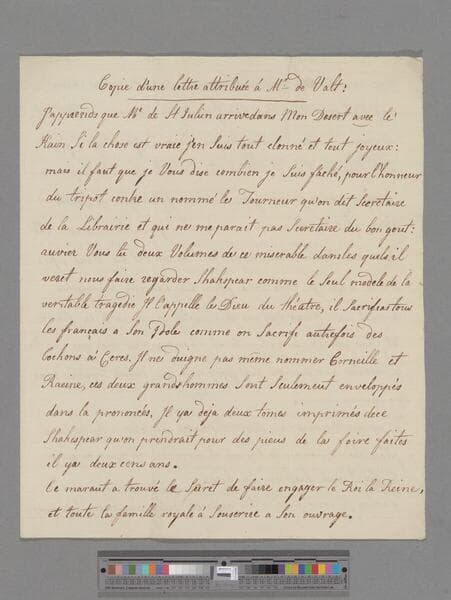 Copie d'une lettre attribuée á Mr. de Valt:
J'apprends que Mr. de St Julin arrive dans Mon Desert avec le
Kain Si la chose est vraie j'en Suis tout etonné et tout joyeux:
mais il faut que je Vous dise combien je Suis faché, pour l'honneur
du tripot contre un nommé le Tourneur qu'on dit Secretaire
de la Librairie et qui ne me parait pas Secretaire du bon gout:
auriez Vous lu deux Volumes de ce miserable dans les quels il
veut nous faire regarder Shakspear comme le Seul modele de la
veritable tragedie Il l'appelle le Dieu du théatre, il Sacrifie tous
les français a Son Idole comme on Sacrifi autrefois des
Cochons á Ceres. Il ne daigne pas même nommer Corneille et
Racine, ces deux grands hommes Sont Seulement enveloppés
dans la
Il y a deja deux tomes imprimés de ce
Shakespear qu'on prendrait pour des pieces de la foire faites
il y a deux cens ans.
Ce maraut a trouvé le de faire engager le Roi la Reine,
et toute la famille royale á Souscrire a Son ouvrage.